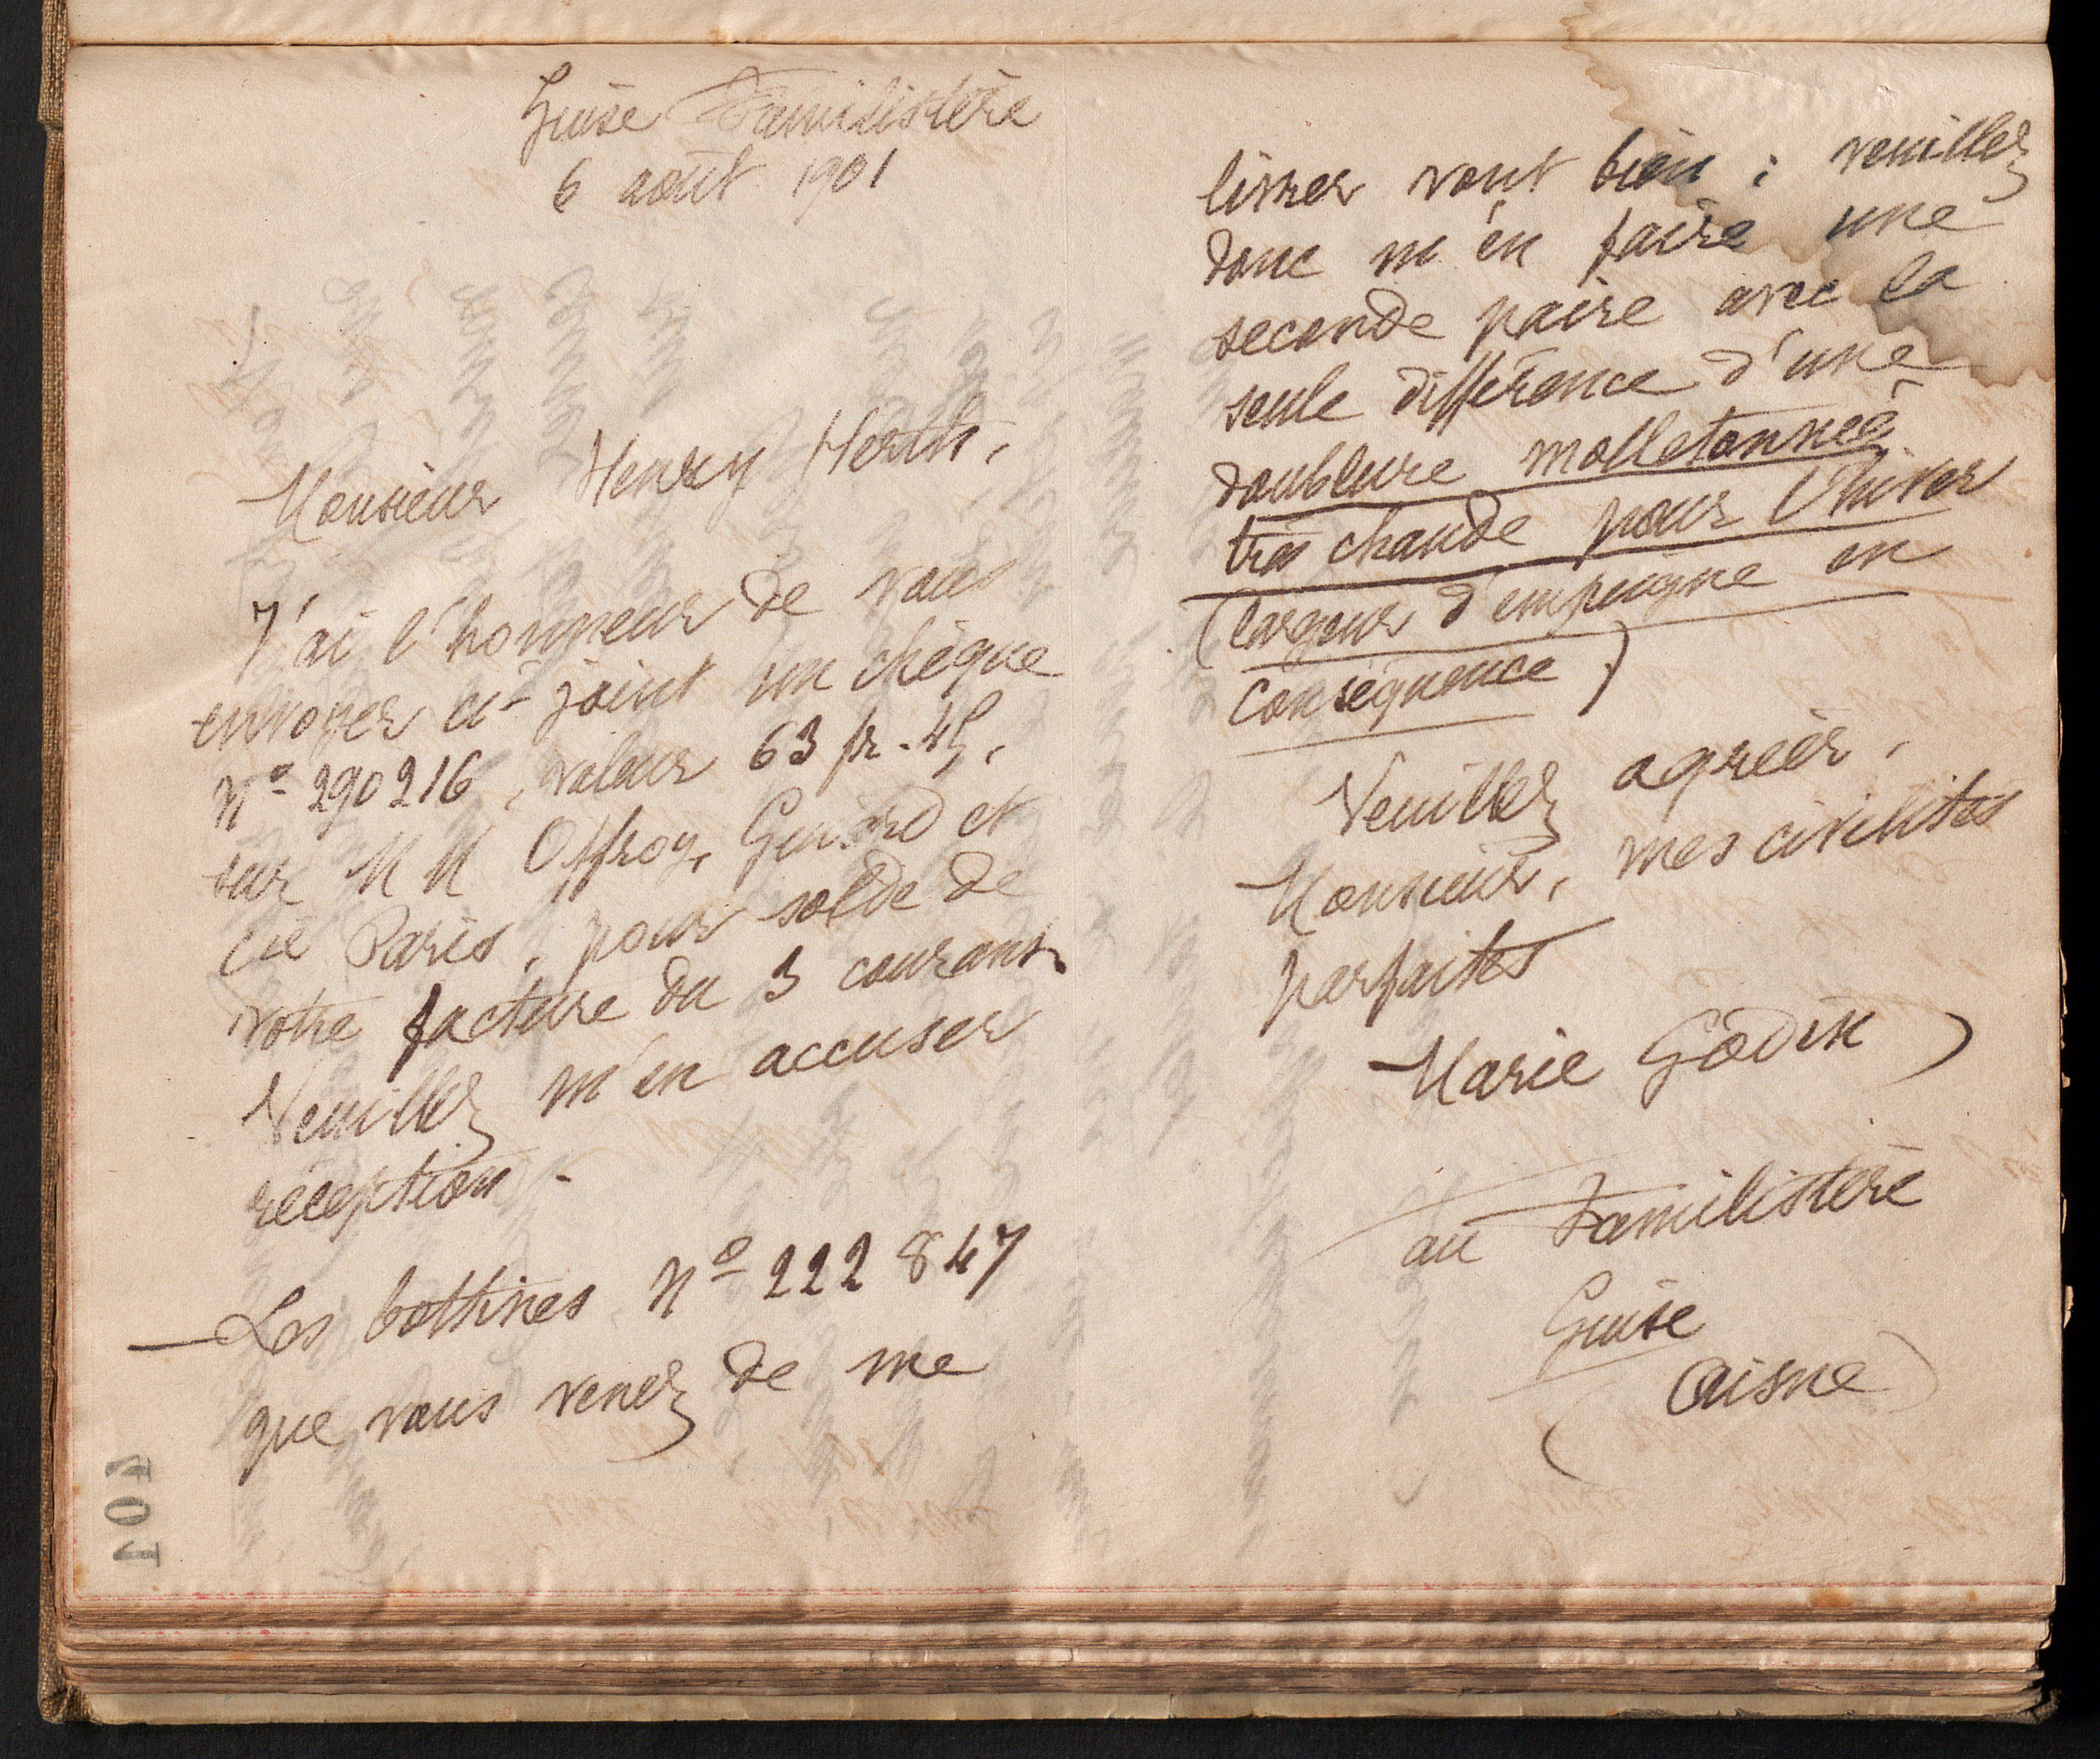 Guise Familistère
6 août 1901
Monsieur Henry
J'ai l'honneur de vous
envoyer ci-joint un chèque
N° 290216, valeur 63 fr. 45,
sur MM Offroy, Guiard et
Cie Paris, pour solde de
votre facture du 3 courant.
Veuillez m'en accuser
réception.
— Les bottines N° 222847
que vous venez de me
livrer vont bien ; veuillez
donc m'en faire une
seconde paire avec la
seule différence d'une
doublure molletonnée
très chaude pour l'hiver
(largeur d'empeigne en
conséquence)
Veuillez agréer,
Monsieur, mes civilités
parfaites
Marie Godin
au Familistère
Guise
(Aisne)
401